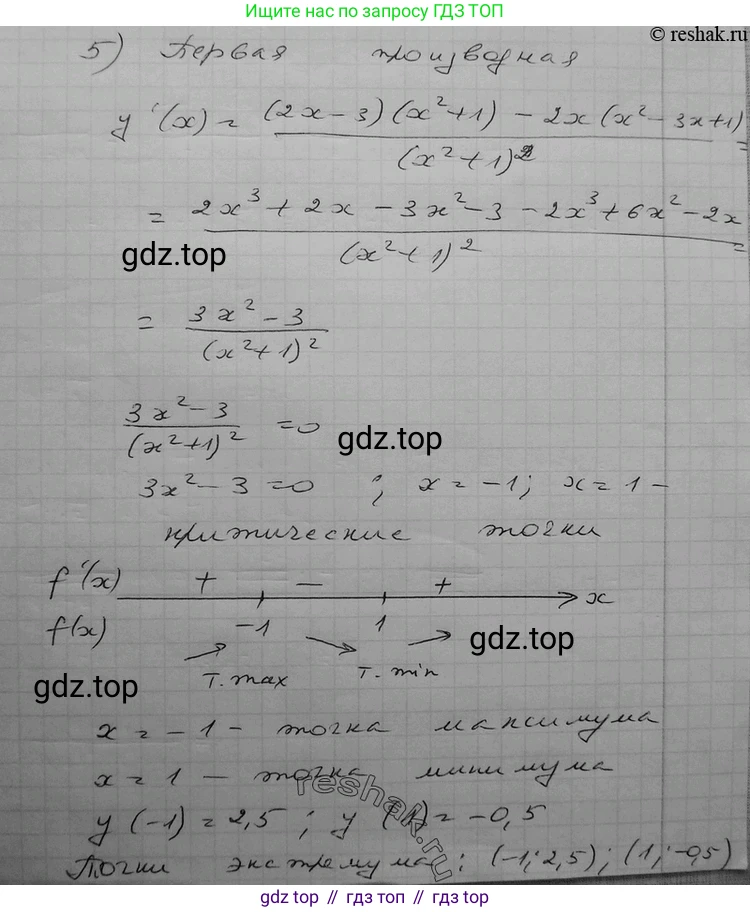 Ищите нас по запросу ГДЗ ТОП
© reshak.ru
5) Первая производная
y'(x) = (2x-3)(x²+1) - 2x(x²-3x+1) / (x²+1)² =
= 2x³+2x-3x²-3-2x³+6x²-2x / (x²+1)² =
gdz.top
= 3x²-3 / (x²+1)²
3x²-3 / (x²+1)² = 0
gdz.top
3x²-3=0 ; x=-1; x=1 -
критические точки
f'(x) + - + x
f(x) -1 1
gdz.top
т. max т. min
gdz.top
x = -1 - точка максимума
x = 1 - точка минимума
reshak.ru
y(-1) = 2,5 ; y(1) = -0,5
Точки экстремума: (-1; 2,5); (1; -0,5)
gdz top // гдз топ // gdz.top